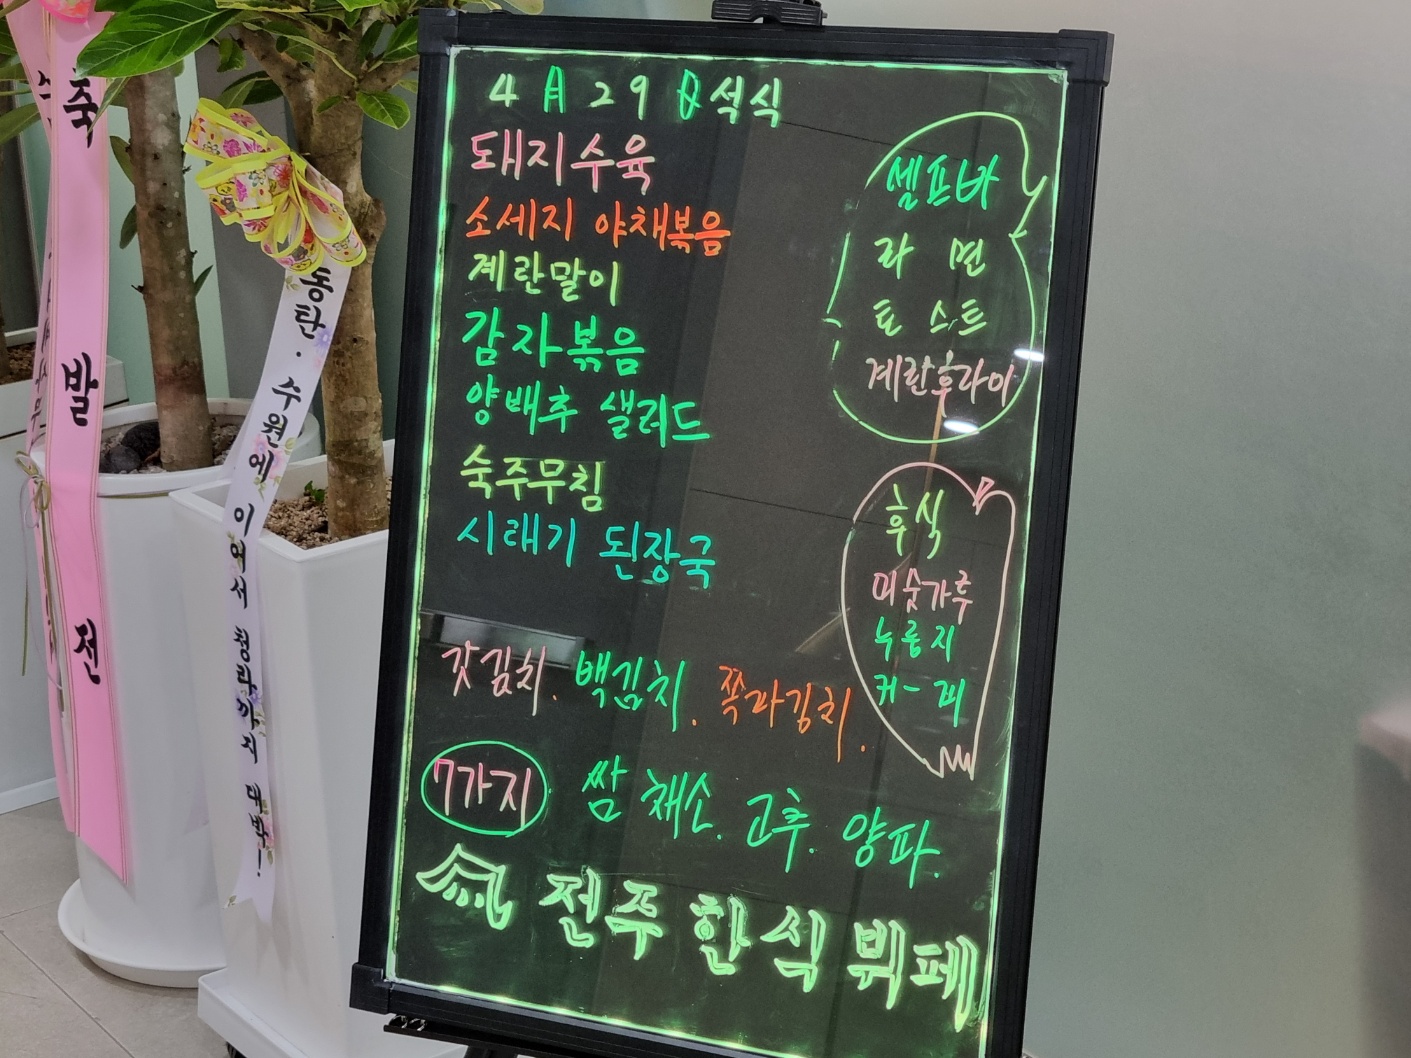 4月29日석식
돼지수육
소세지 야채볶음
계란말이
감자볶음
양배추 샐러드
숙주무침
시래기 된장국
셀프바
라면
토스트
계란후라이
후식
미숫가루
누룽지
커-피
갓김치. 백김치. 쪽파김치.
7가지 쌈채소. 고추. 양파.
전주 한식 뷔페
축 발전
동탄·수원에 이어서 청라까지 대박!